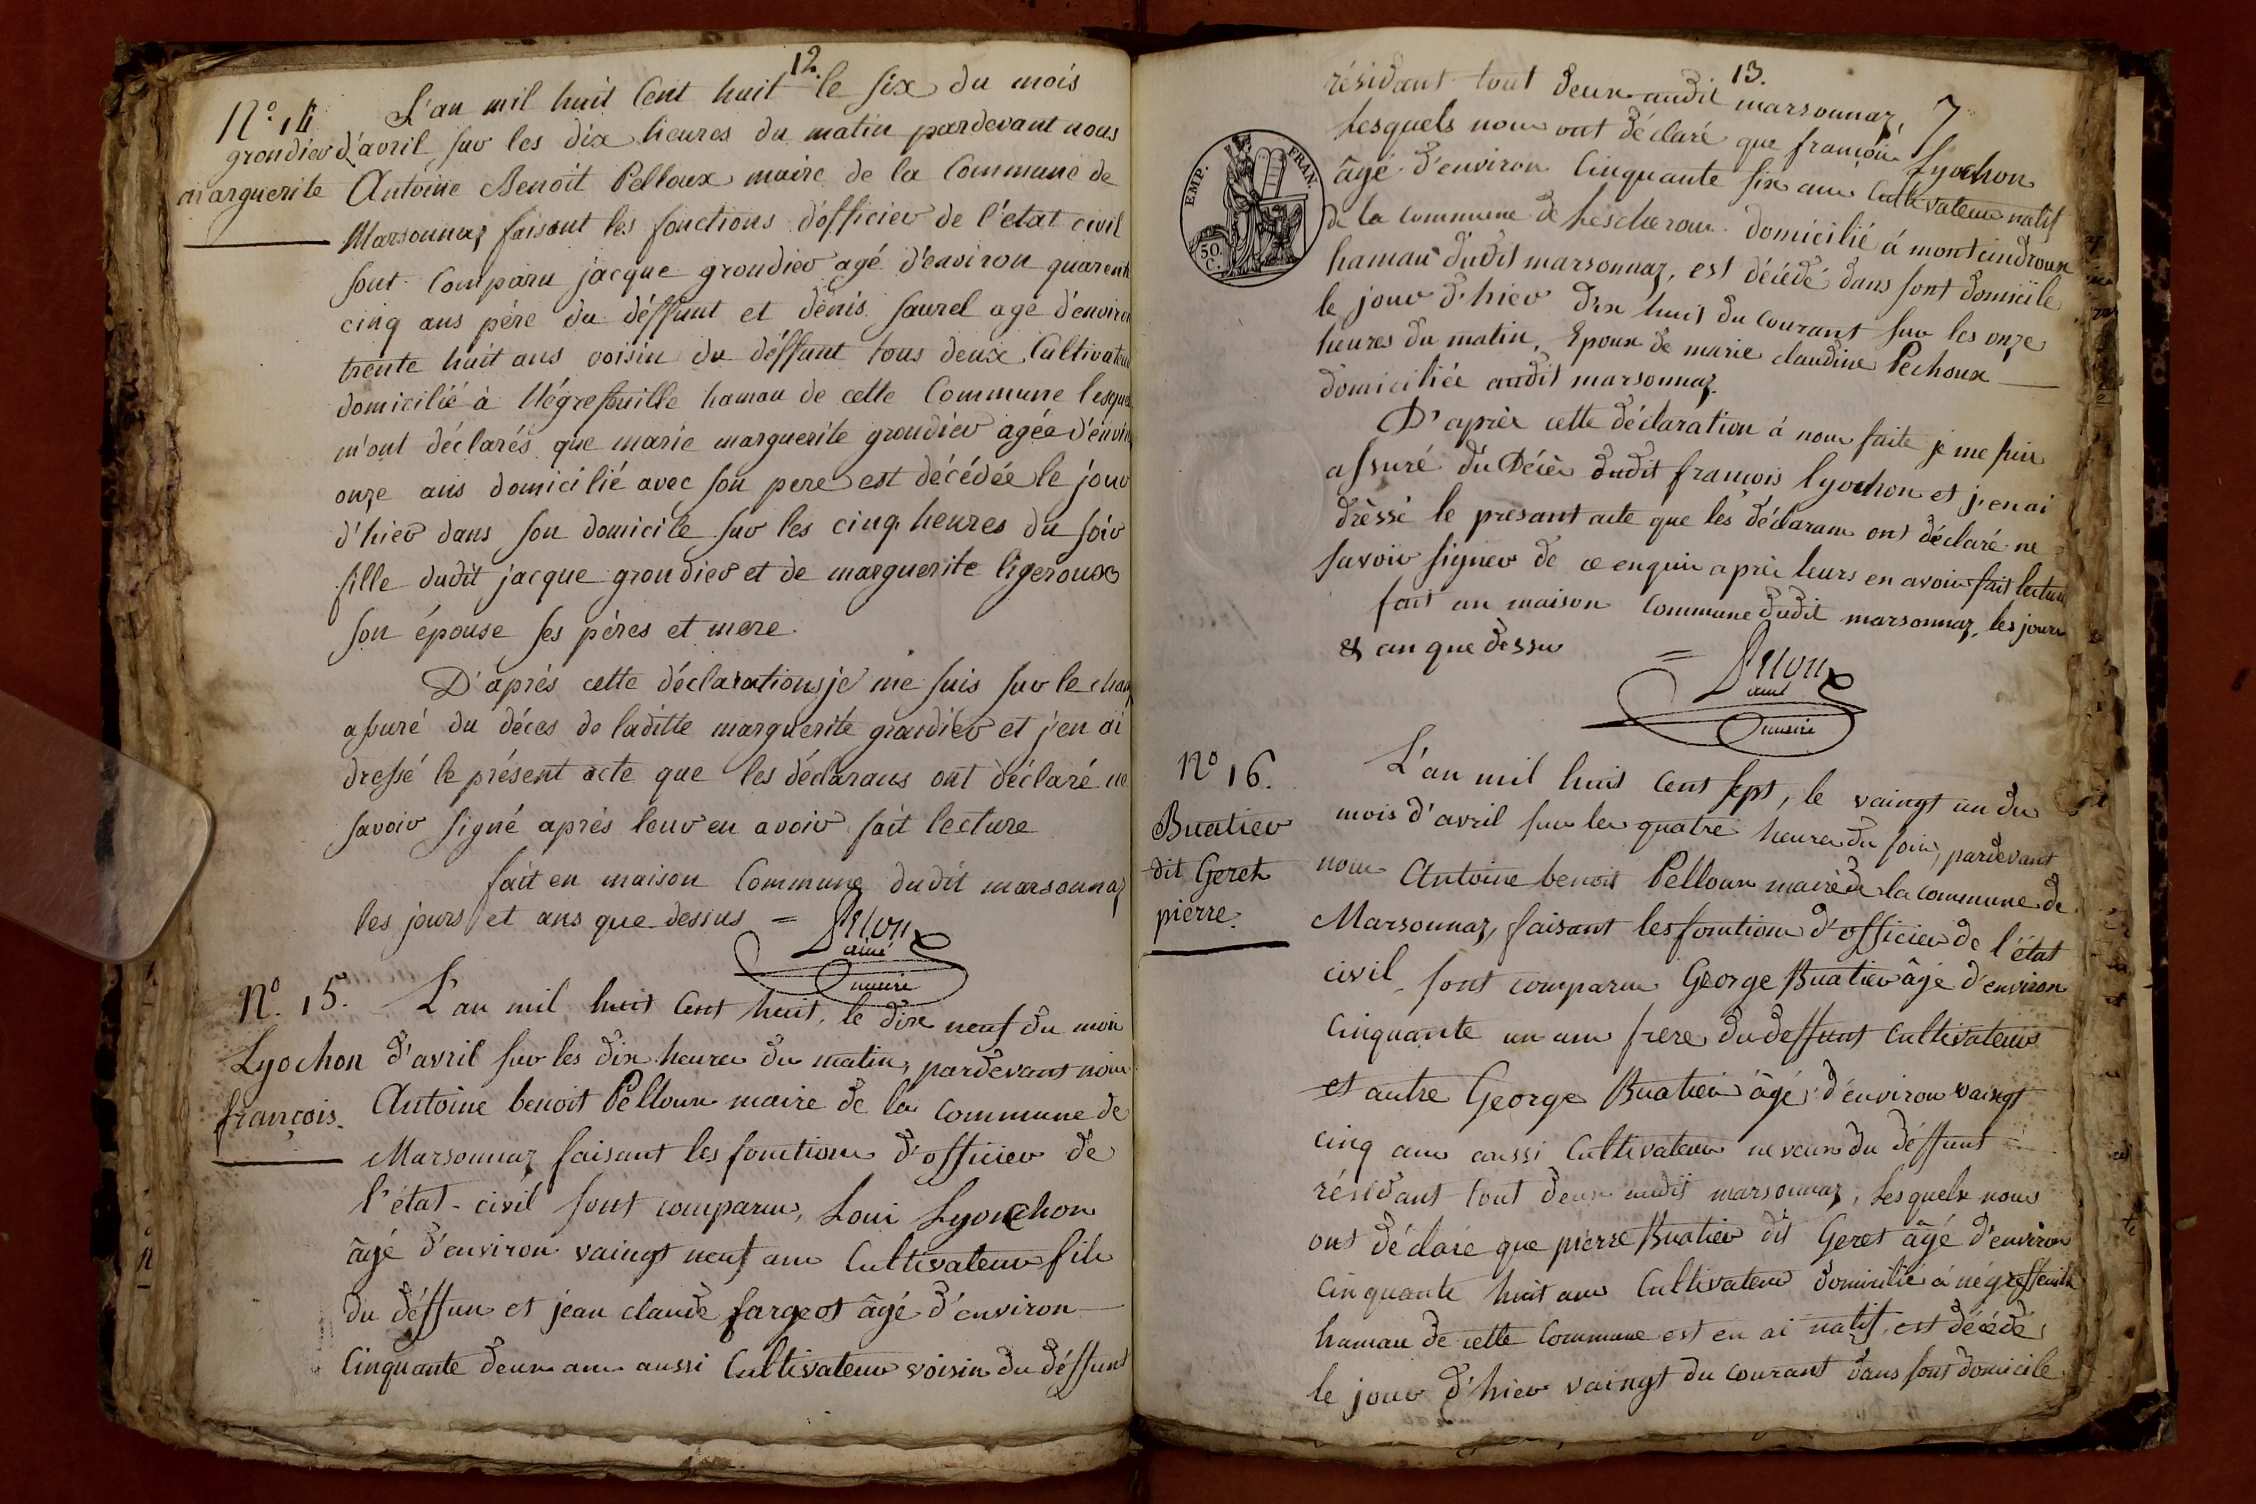 12.
N.º 14
grondier
marguerite
L'an mil huit Cent huit le six du mois
d'avril, sur les dix heures du matin pardevant nous
Antoine Benoit Pelloux maire de la Commune de
Marsonnaz faisant les fonctions d'officier de l'état civil
sont Comparu jacque grondier agé d'environ quarente
cinq ans pére du déffunt et denis saurel age d'environ
trente huit ans voisin du déffunt tous deux Cultivateur
domicilié à Négrefouille hamau de cette Commune lesquel
m'ont déclarés que marie marguerite grondier agée d'environ
onze ans domicilié avec son pere est décédée le jour
d'hier dans son domicile sur les cinq heures du soir
fille dudit jacque grondier et de marguerite ligeroux
son épouse ses péres et mere.
D'aprés cette déclarations je me suis sur le cham
assuré du déces de laditte marguerite grondier et j'en ai
dressé le présent acte que les déclarans ont déclaré ne
savoir signé aprés leur en avoir fait lecture
fait en maison Commune dudit marsonnaz
les jours et ans que dessus =
ainé
maire
Nº. 15.
Lyochon
françois.
L'an mil huit Cent huit, le dix neuf du mois
d'avril sur les dix heures du matin, pardevant nous
Antoine benoit Pelloux maire de la commune de
Marsonnaz faisant les fonctions d'officier de
l'état-civil sont comparus, Loui Lyonchon
âgé d'environ vaingt neuf ans Cultivateur fils
du déffun et jean claude fargeot âgé d'environ
Cinquante deux ans aussi Cultivateur voisin du déffunt
13.
7
EMP. FRAN.
50. C.
résidant tout deux audit marsonnaz,
Lesquels nous ont déclaré que françois Lyochon
âgé d'environ Cinquante six ans Cultivateur natif
de la commune de domicilié á
hamau dudit marsonnaz, est décédé dans sont domicile
le jour d'hier dix huit du courant sur les onze
heures du matin, Epoux de marie claudine Pechoux
domiciliée audit marsonnaz.
D'aprés cette déclaration á nous faite je me suis
assuré du Décès dudit françois lyochon et j'en ai
dressé le présant acte que les déclarans ont déclaré ne
savoir signer de ce enquis aprés leurs en avoir fait lecture
fait an maison Commune dudit marsonnaz, les jours
et an que dessus =
ainé
maire
Nº 16.
Buatier
dit Geret
pierre.
L'an mil huit Cent sept, le vaingt un du
mois d'avril sur les quatre heures du soir, pardevant
nous Antoine benoit Pelloux maire de la commune de
Marsonnaz, faisant les fonctions d'officier de l'état
civil sont comparus George Buatier âgé d'environ
Cinquante un ans frere du deffunt Cultivateur
et autre George Buatier âgé d'environ vaingt
cinq ans aussi Cultivateur neveux du déffunt
résidant tout deux audit marsonnaz, Lesquels nous
ont déclaré que pierre Buatier dit Geret âgé d'environ
Cinquante huit ans Cultivateur domicilié á négreffeuille
hamau de cette Commune est en ai natif, est décédé
le jour d'hier vaingt du courant dans sont domicile